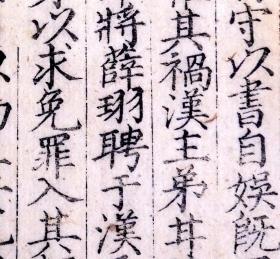 守以書自娛既
其禍漢主弟甘
將薛珝聘于漢
身以求免罪入其